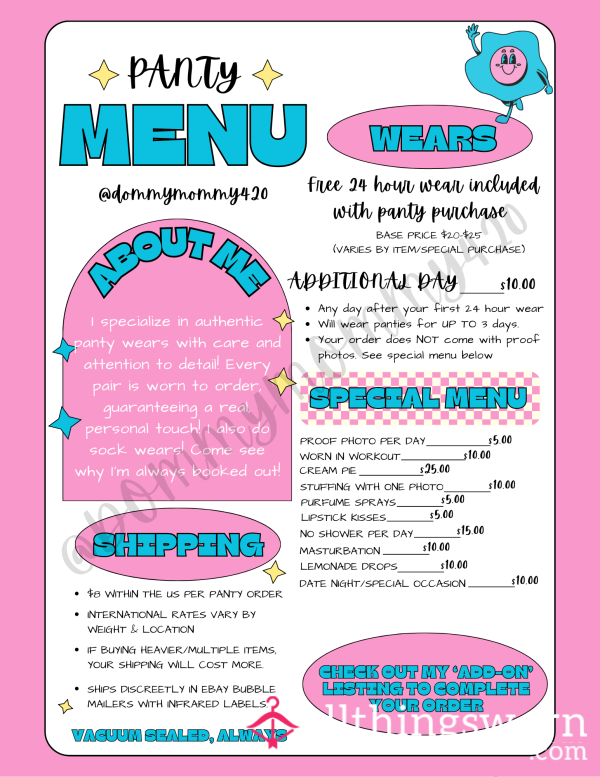 PANTY
MENU
@dommymommy420
ABOUT ME
I specialize in authentic
panty wears with care and
attention to detail! Every
pair is worn to order,
guaranteeing a real,
personal touch! I also do
sock wears! Come see
why I'm always booked out!
SHIPPING
• $8 WITHIN THE US PER PANTY ORDER
• INTERNATIONAL RATES VARY BY
WEIGHT & LOCATION
• IF BUYING HEAVIER/MULTIPLE ITEMS,
YOUR SHIPPING WILL COST MORE.
• SHIPS DISCREETLY IN EBAY BUBBLE
MAILERS WITH INFRARED LABELS
VACUUM SEALED, ALWAYS
WEARS
Free 24 hour wear included
with panty purchase
BASE PRICE $20-$25
(VARIES BY ITEM/SPECIAL PURCHASE)
ADDITIONAL DAY______$10.00
• Any day after your first 24 hour wear
• Will wear panties for UP TO 3 days.
• Your order does NOT come with proof
photos. See special menu below
SPECIAL MENU
PROOF PHOTO PER DAY________$5.00
WORN IN WORKOUT________$10.00
CREAM PIE ________$25.00
STUFFING WITH ONE PHOTO______$10.00
PURFUME SPRAYS______$5.00
LIPSTICK KISSES______$5.00
NO SHOWER PER DAY______$15.00
MASTURBATION ______$10.00
LEMONADE DROPS______$10.00
DATE NIGHT/SPECIAL OCCASION ______$10.00
CHECK OUT MY 'ADD-ON'
LISTING TO COMPLETE
YOUR ORDER
@dommymommy420
allthingsworn
.com